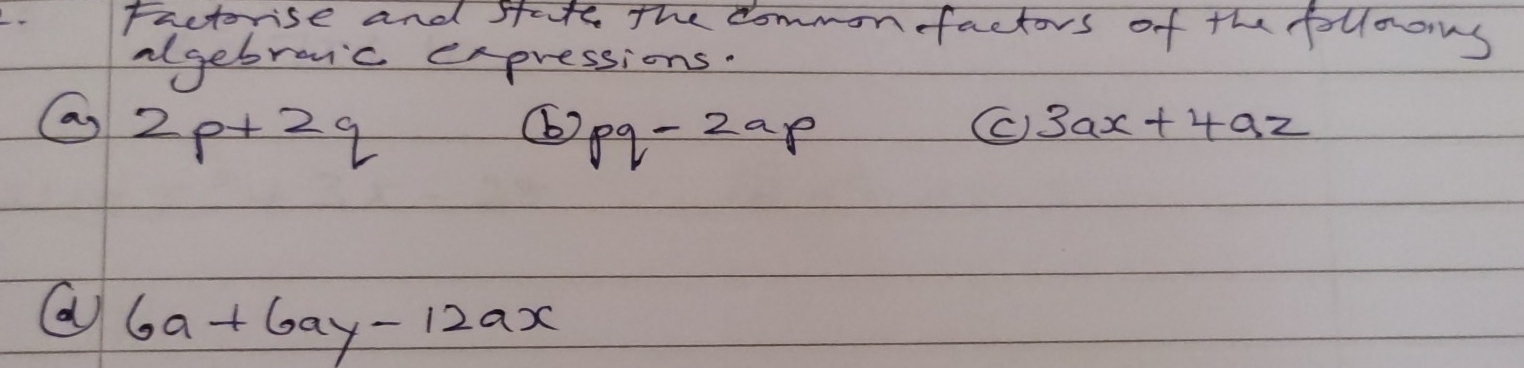 2. Factorise and state the common factors of the following
algebraic expressions.
(a) 2p+2q (b) pq-2ap (c) 3ax+4az
(d) 6a+6ay-12ax